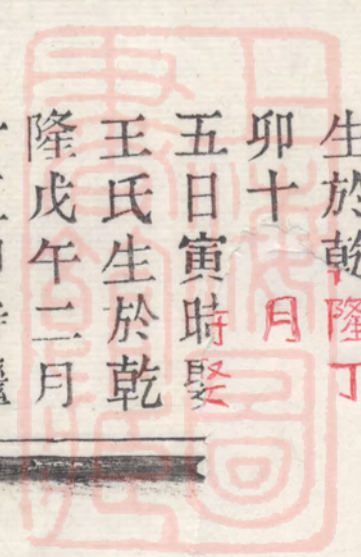 生於乾隆丁
卯十月
五日寅時娶
王氏生於乾
隆戊午二月